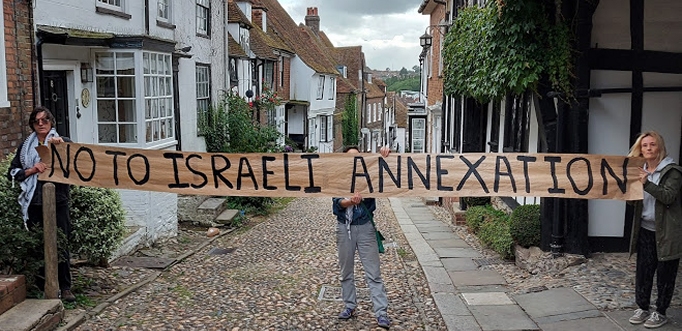 NO TO ISRAELI ANNEXATION